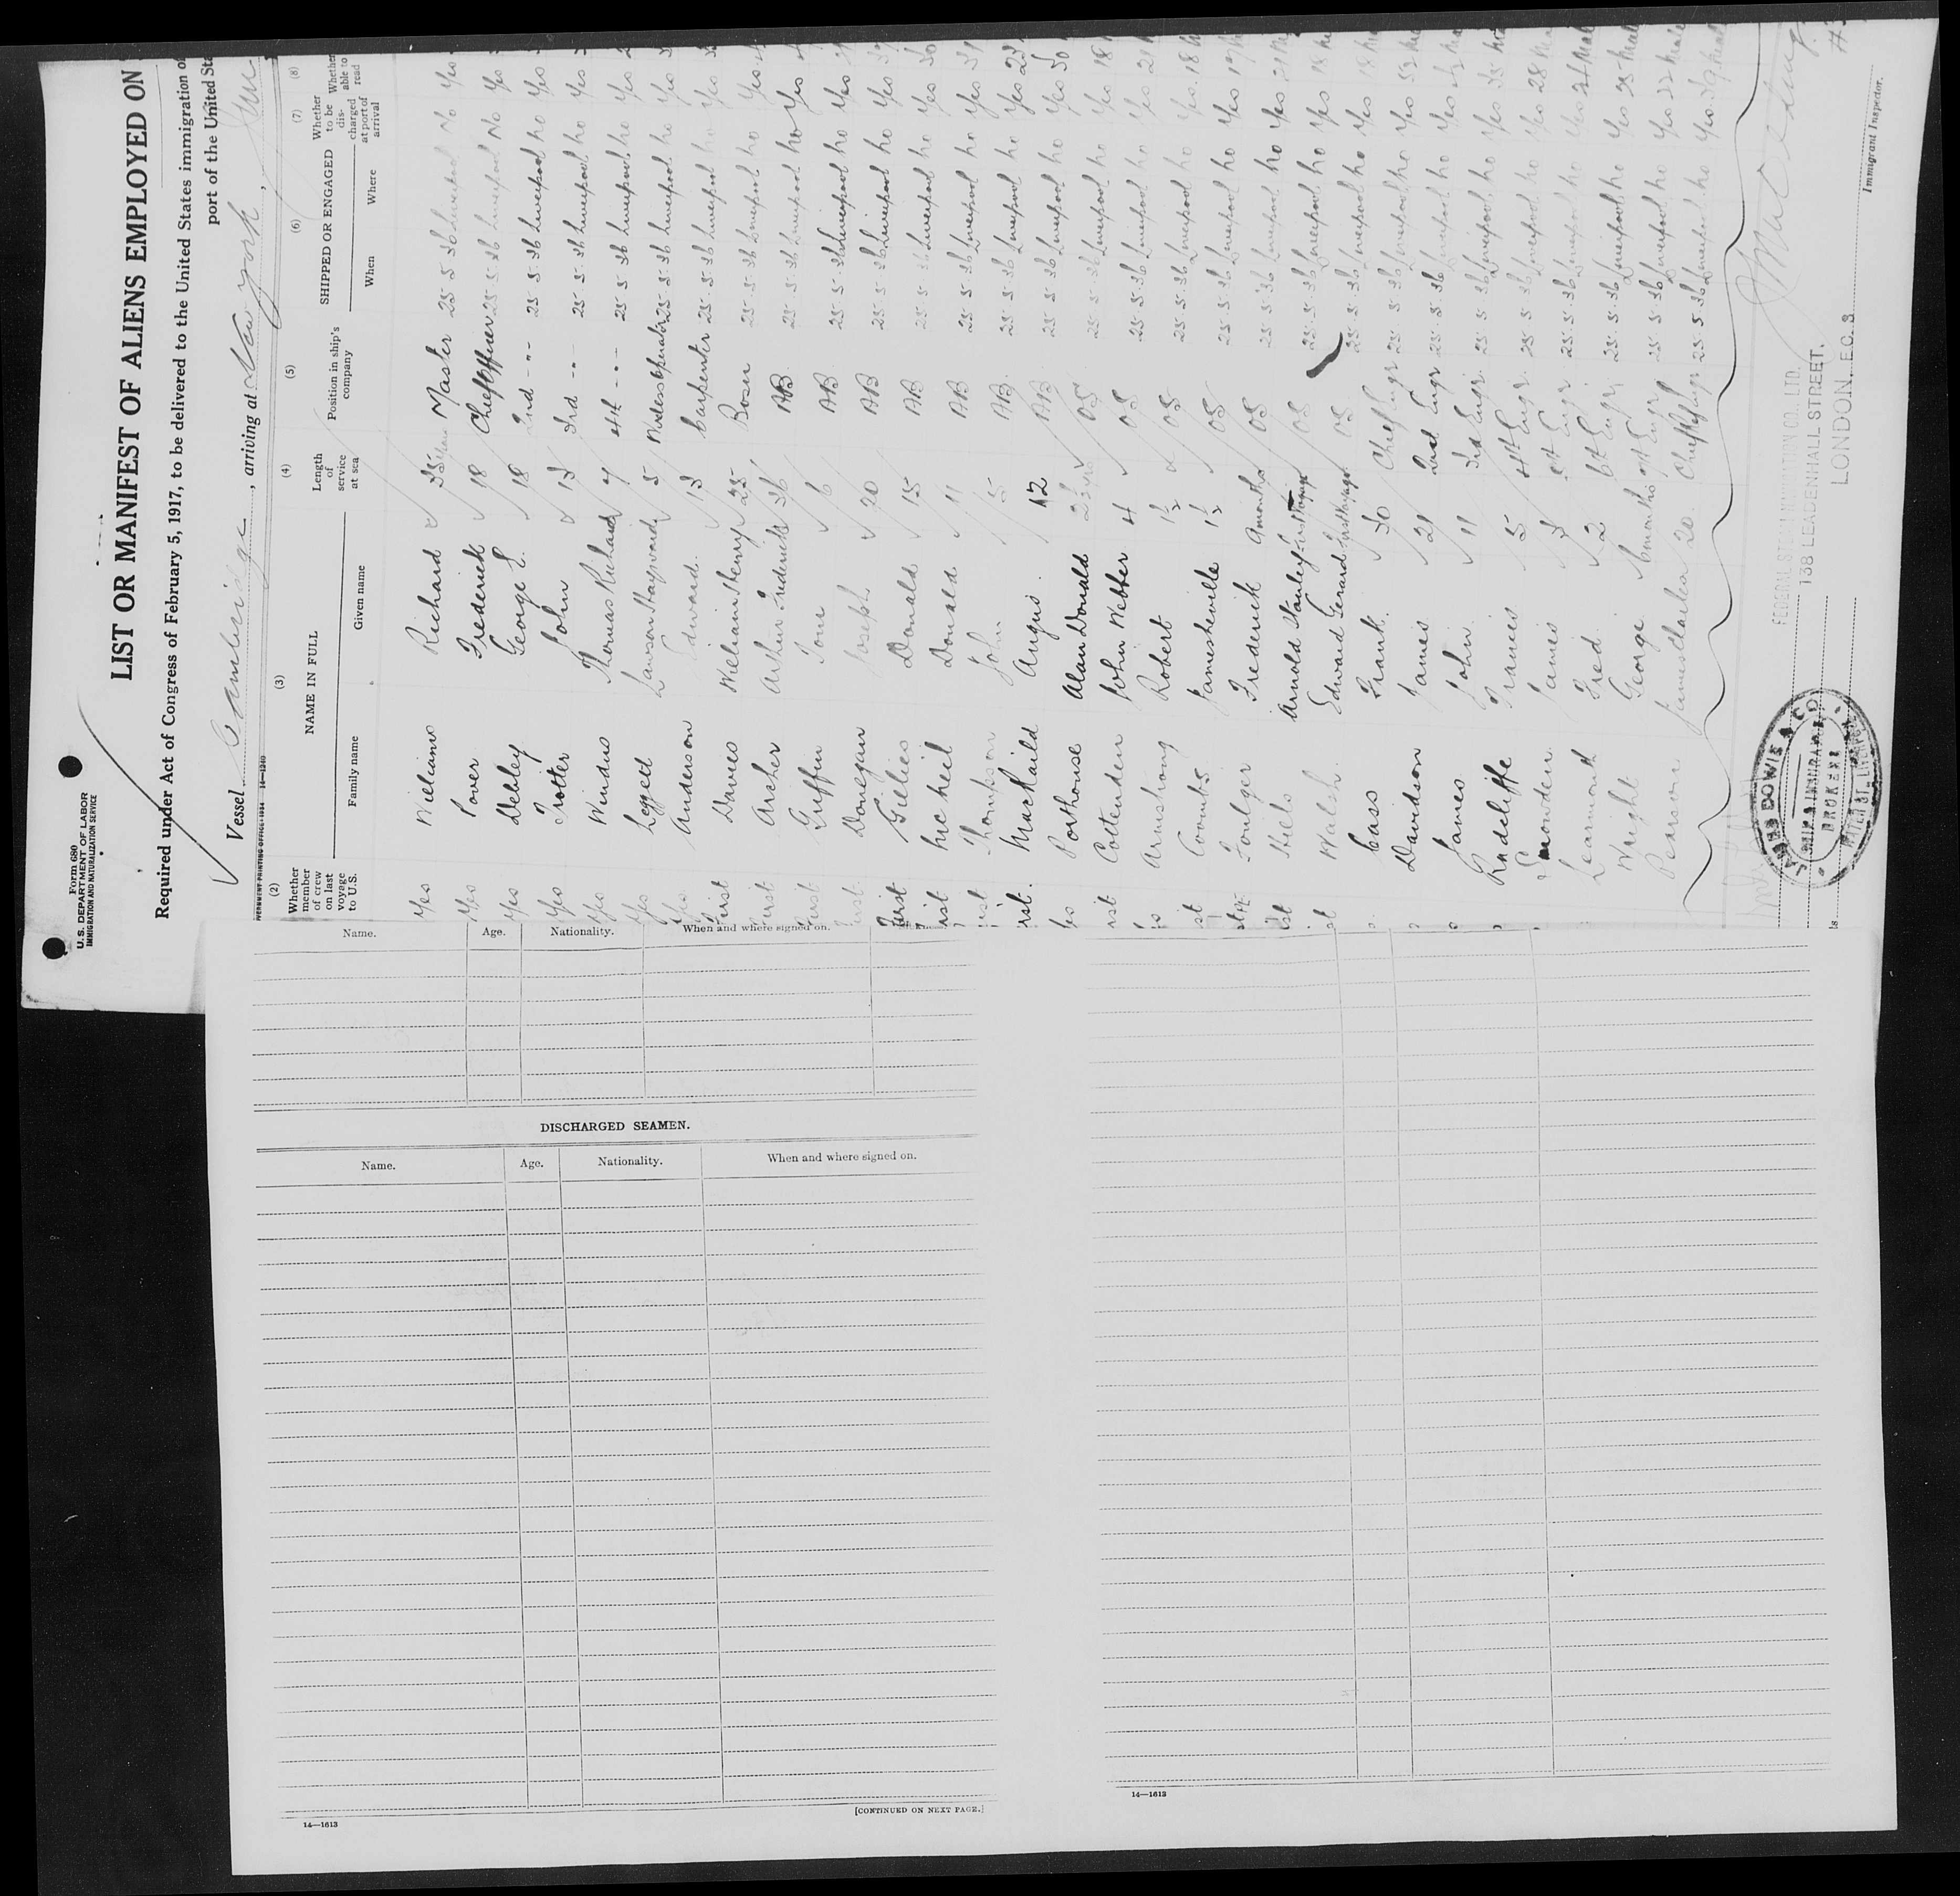 U.S. DEPARTMENT OF LABOR
Form 680
IMMIGRATION AND NATURALIZATION SERVICE
LIST OR MANIFEST OF ALIENS EMPLOYED ON
Required under Act of Congress of February 5, 1917, to be delivered to the United States immigration
port of the United
Vessel Cambridge, arriving at New York,
14—1240
(2) (3) (4) (5) (6) (7) (8)
Whether member of crew on last voyage to U.S. NAME IN FULL Length of service at sea Position in ship's company SHIPPED OR ENGAGED Whether to be discharged at port of arrival Whether able to read
Family name Given name When Where
Yes Williams Richard 35 Master 25 5 36 Liverpool No Yes
Yes Power Frederick 18 Chief Officer 25 5 36 Liverpool No Yes
Yes Debley George E. 18 2nd 25 5 36 Liverpool No Yes
Yes Trotter John 13 3rd 25 5 36 Liverpool No Yes
Yes Windus Thomas Richard 7 4th 25 5 36 Liverpool No Yes
Yes Leggett Lawson Hayward 5 Wireless Operator 25 5 36 Liverpool No Yes
Yes Anderson Edward 13 Carpenter 25 5 36 Liverpool No Yes
First Davies William Henry 25 Bosn 25 5 36 Liverpool No Yes
First Archer Arthur Frederick 36 AB 25 5 36 Liverpool No Yes
First Griffin 6 AB 25 5 36 Liverpool No Yes
First Donegan Joseph 20 AB 25 5 36 Liverpool No Yes 30
First Gillies Donald 15 AB 25 5 36 Liverpool No Yes
irst McNeil Donald 11 AB 25 5 36 Liverpool No Yes
irst Thompson John 5 AB 25 5 36 Liverpool No Yes 30
irst. MacPhail Angus 12 AB 25 5 36 Liverpool No Yes
es Porthouse Alan Donald OS 25 5 36 Liverpool No Yes 18
irst Cottenden John Webber 4 OS 25 5 36 Liverpool No Yes 21
es Armstrong Robert 1½ OS 25 5 36 Liverpool No Yes 18
st Coombs James 1½ OS 25 5 36 Liverpool No Yes
st Foulger Frederick 9 months OS 25 5 36 Liverpool No Yes
st Hels Arnold Stanley First Voyage OS 25 5 36 Liverpool No Yes
st Walsh Edward Gerard First Voyage OS 25 5 36 Liverpool No Yes 18
Cass Frank 30 Chief Engr 25 5 36 Liverpool No Yes 52
Davidson James 21 2nd Engr 25 5 36 Liverpool No Yes
James John 11 3rd Engr 25 5 36 Liverpool No Yes 35
Radcliffe Francis 5 4th Engr 25 5 36 Liverpool No Yes 28
James 3 5th Engr 25 5 36 Liverpool No Yes
Learmond Fred 2 6th Engr 25 5 36 Liverpool No Yes 25
Wright George 6 months 7th Engr 25 5 36 Liverpool No Yes 22
Pearson James Charles 20 25 5 36 Liverpool No Yes 39
FEDERAL STEAM NAVIGATION CO. LTD.
138 LEADENHALL STREET,
LONDON, E.C. 3
Immigrant Inspector.
Name. Age. Nationality. When and where signed on.
DISCHARGED SEAMEN.
Name. Age. Nationality. When and where signed on.
[CONTINUED ON NEXT PAGE.]
14—1613
14—1613